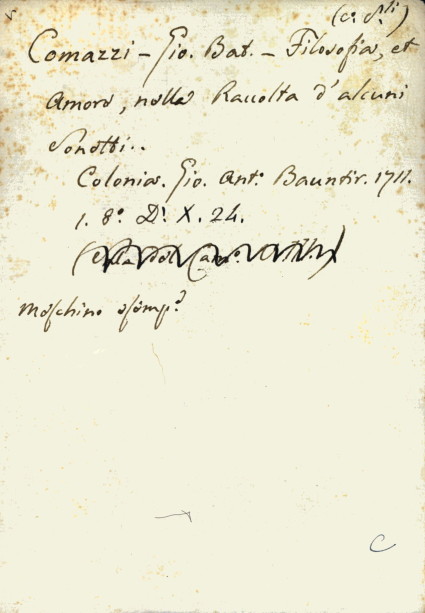 (c. S.ti)
Comazzi - Gio. Bat. - Filosofia, et
Amore, nella Raccolta d'alcuni
Sonetti..
Colonia. Gio. Ant.o Bauntir. 1711.
1. 8.o D.i X. 24.
Meschino esemp.e
C